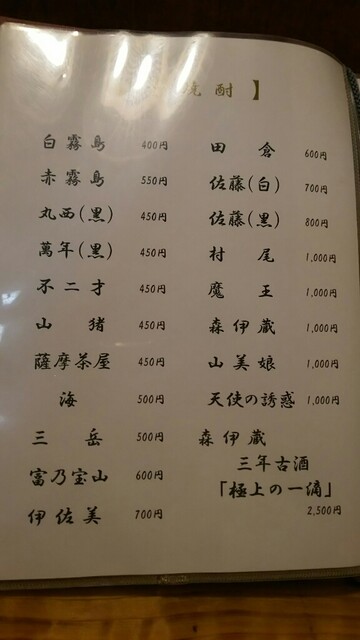 焼酎】
白霧島 400円
赤霧島 550円
丸西(黒) 450円
萬年(黒) 450円
不二才 450円
山猪 450円
薩摩茶屋 450円
海 500円
三岳 500円
富乃宝山 600円
伊佐美 700円
田倉 600円
佐藤(白) 700円
佐藤(黒) 800円
村尾 1,000円
魔王 1,000円
森伊蔵 1,000円
山美娘 1,000円
天使の誘惑 1,000円
森伊蔵
三年古酒
「極上の一滴」
2,500円